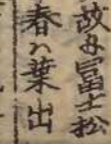 故に冨士松
春ハ葉出